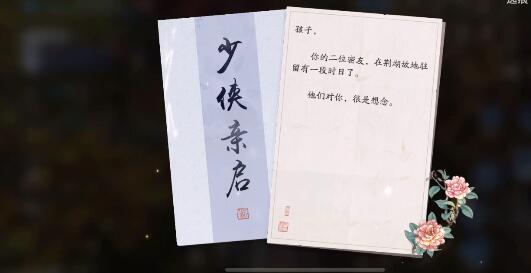 少侠亲启
孩子，
你的二位密友，在荆湖故地驻
留有一段时日了。
他们对你，很是想念。